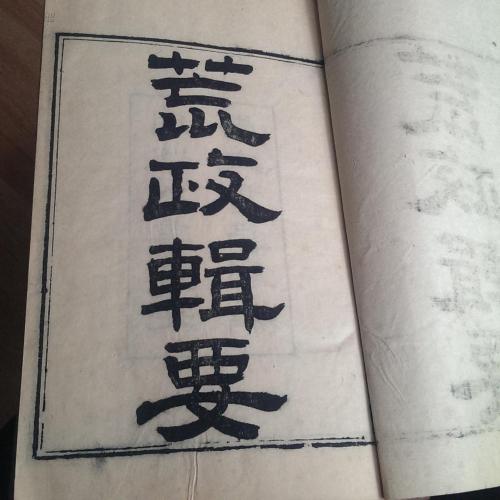 荒政輯要